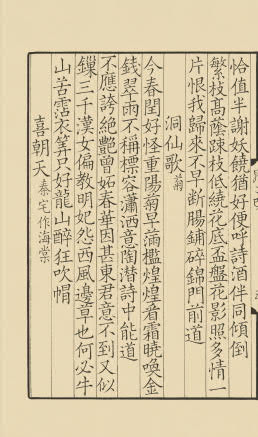 恰值半謝妖饒猶好便呼詩酒伴同傾倒
繁枝高蔭疎枝低繞花底盃盤花影照多情一
片恨我歸來不早斷腸鋪碎錦門前道
洞仙歌菊
今春閏好怪重陽菊早滿檻煌煌看霜曉喚金
錢翠雨不稱標容瀟洒意陶潛詩中能道
不應誇絶艷曾妬春華因甚東君意不到又似
鏁三千漢女偏教明妃怨西風邊草也何必牛
山苦霑衣筭只好龍山醉狂吹帽
喜朝天秦宅作海棠